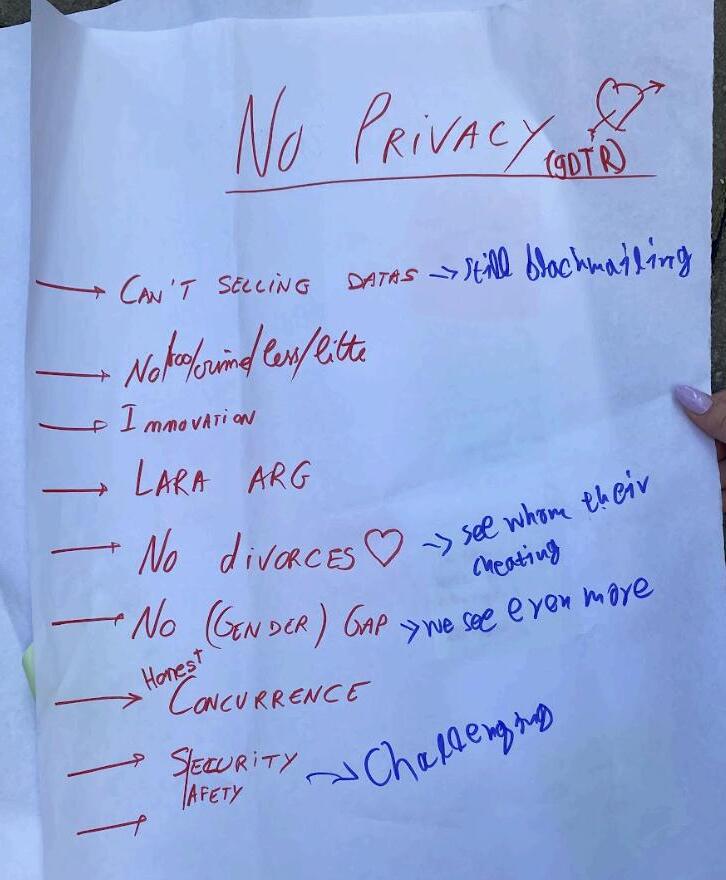 No PRIVACY (gDTR)
CAN'T SELLING DATAS → still blackmailing
No too/crime/less/litte
INNOVATION
LARA ARG
No divorces ♡ → see whom their
cheating
No (GENDER) GAP → we see even more
Honest
CONCURRENCE
SECURITY → Challenging
SAFETY